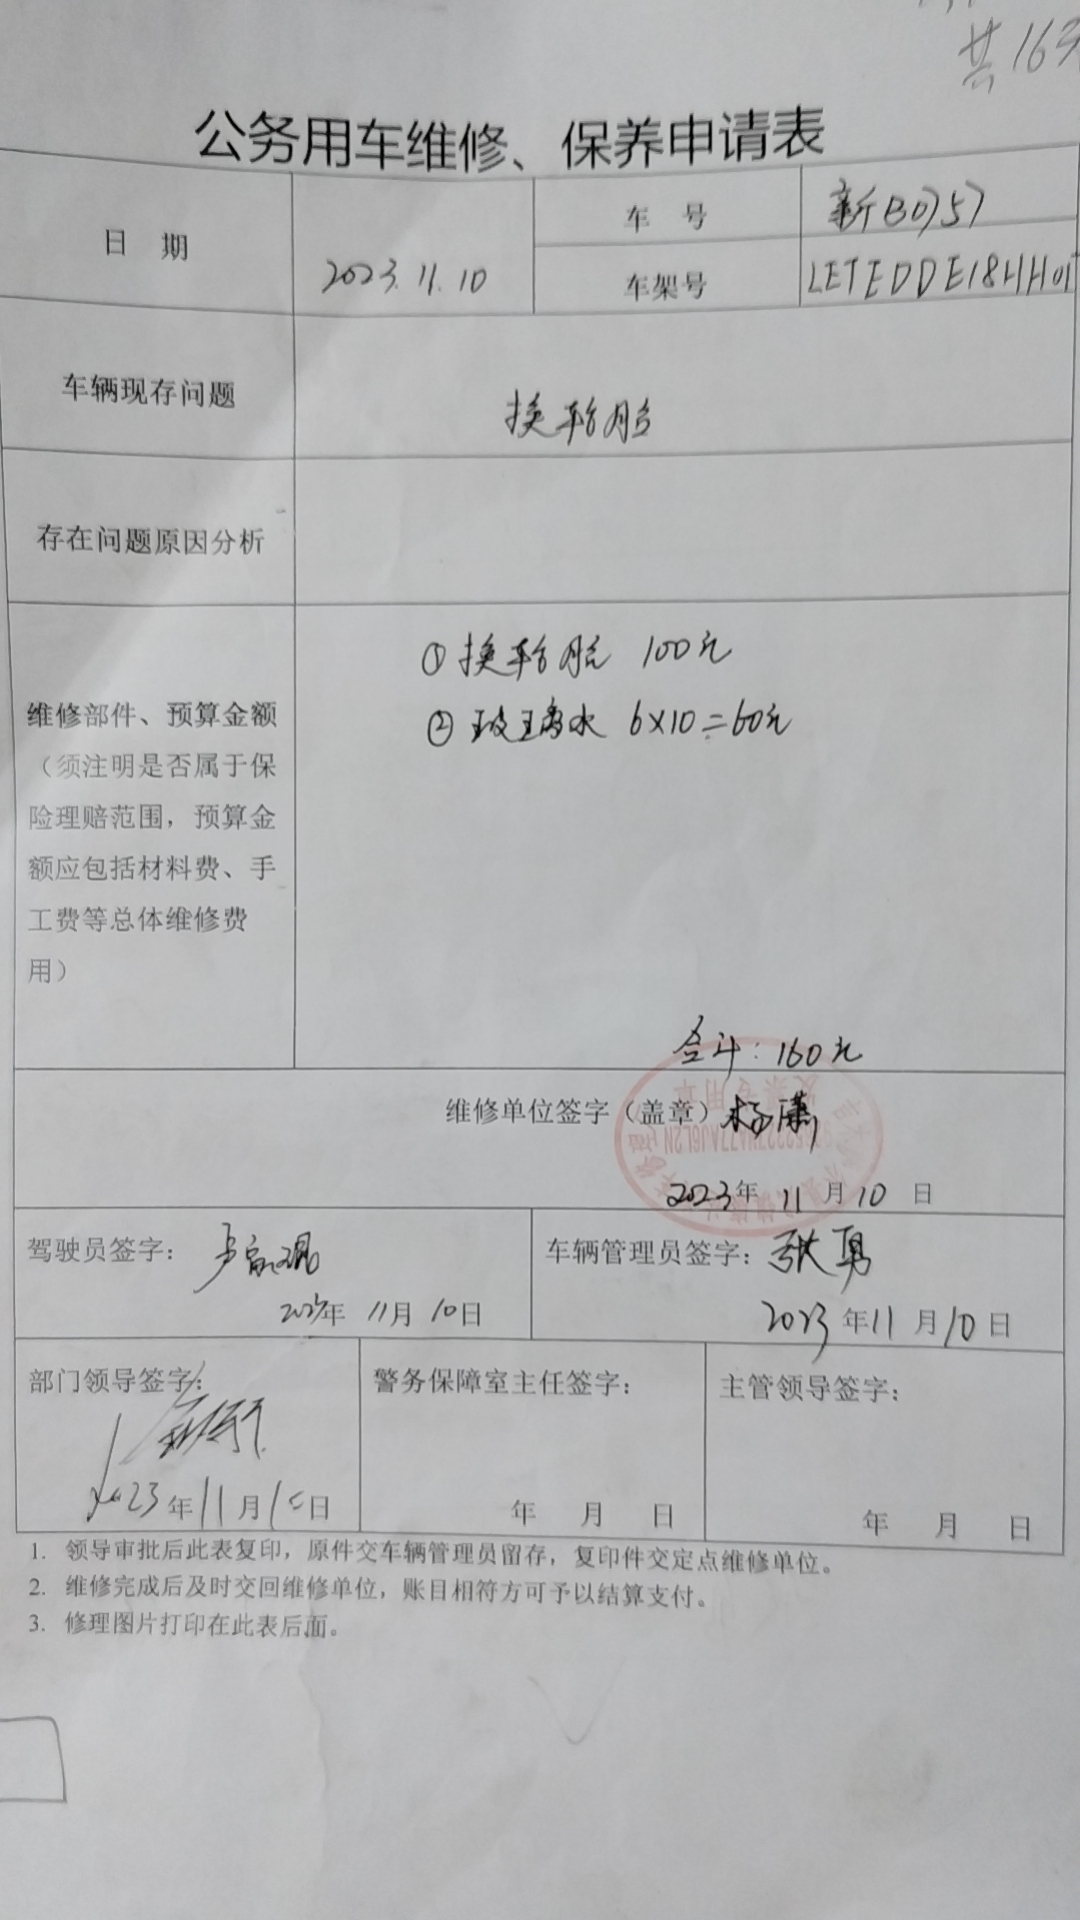 共16
公务用车维修、保养申请表
日 期
2023.11.10
车 号
新B0757
车架号
LETEDDE18HH01
车辆现存问题
换轮胎
存在问题原因分析
维修部件、预算金额
（须注明是否属于保
险理赔范围，预算金
额应包括材料费、手
工费等总体维修费
用）
①换轮胎 100元
②玻璃水 6×10=60元
合计：160元
维修单位签字（盖章）杨潇
2023年 11 月 10 日
驾驶员签字：
2023年 11月 10日
车辆管理员签字：张勇
2023年11月10日
部门领导签字：
2023年11月10日
警务保障室主任签字：
年 月 日
主管领导签字：
年 月 日
1. 领导审批后此表复印，原件交车辆管理员留存，复印件交定点维修单位。
2. 维修完成后及时交回维修单位，账目相符方可予以结算支付。
3. 修理图片打印在此表后面。